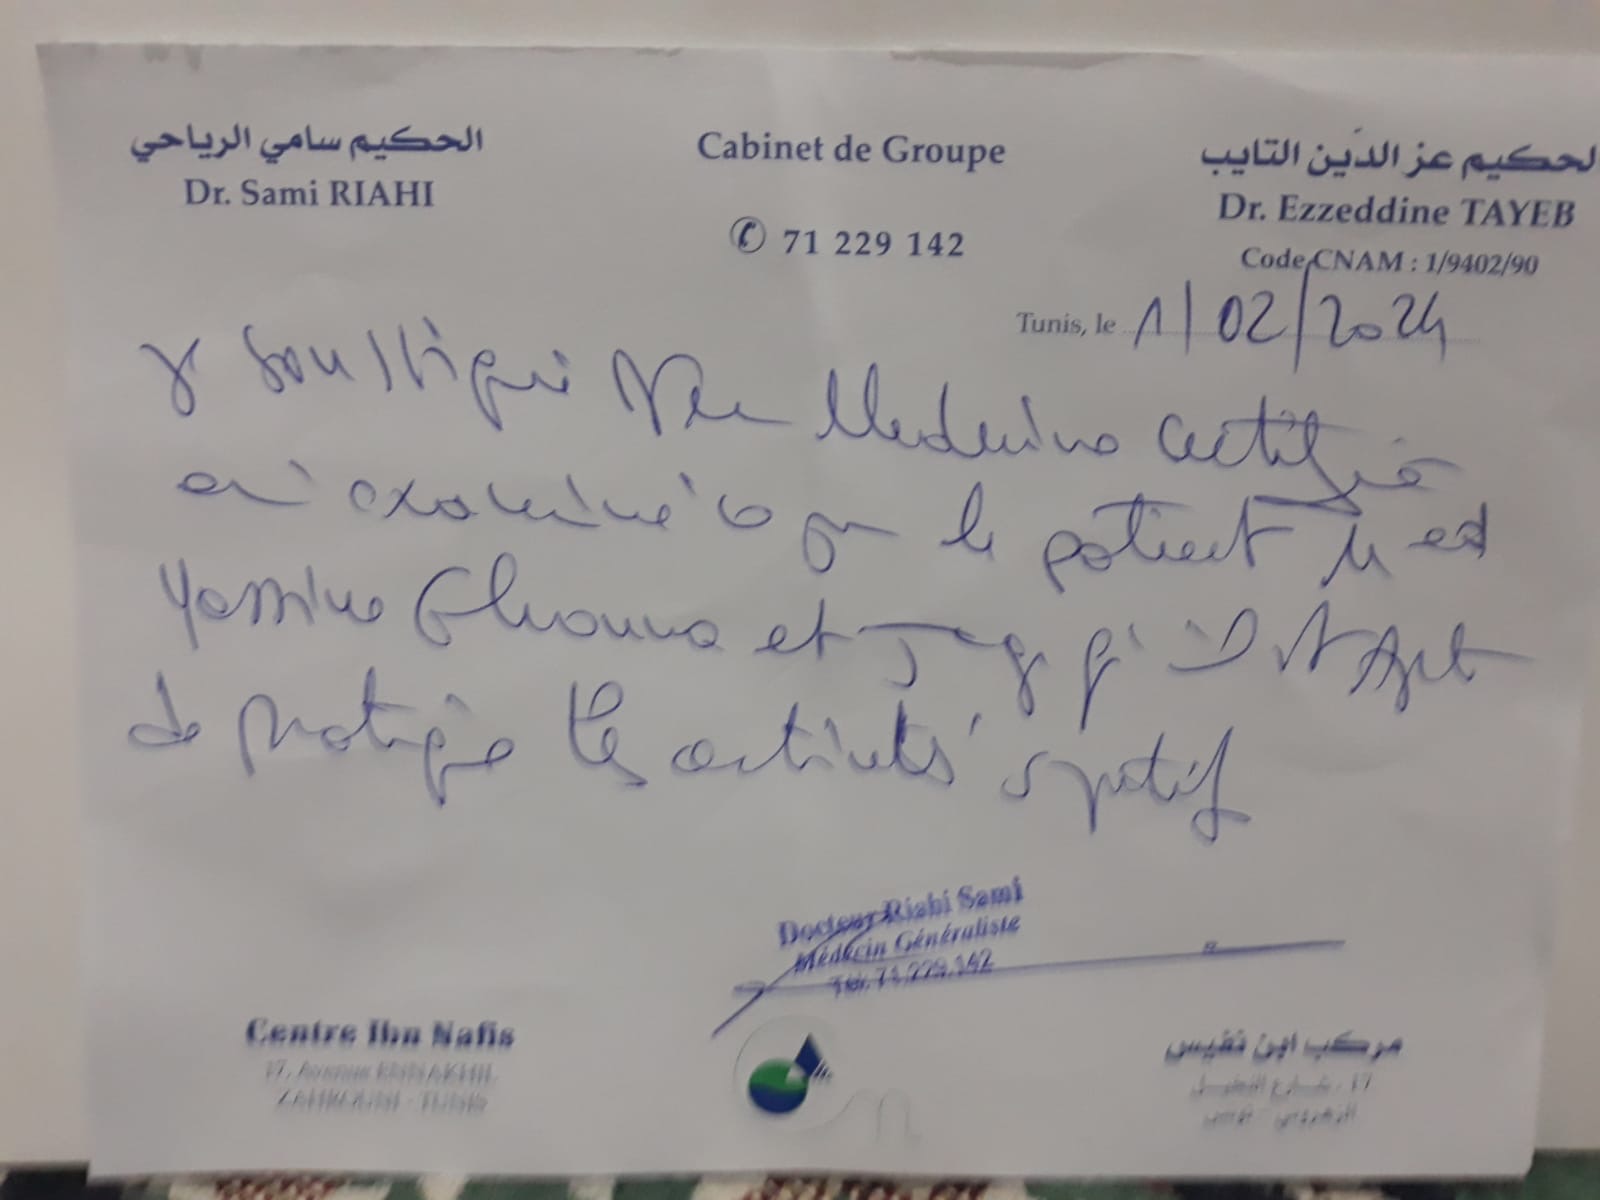 الحكيم سامي الرياحي
Dr. Sami RIAHI
Cabinet de Groupe
✆ 71 229 142
لحكيم عز الدّين التايب
Dr. Ezzeddine TAYEB
Code CNAM : 1/9402/90
Tunis, le 1/02/2024
Je soussigné Medecine certifie
examiné ce jour le patient Med
Yassine et qu'il est Apt
de pratiqué les activités sportif
Docteur Riahi Sami
Médecin Généraliste
Tél: 71.229.142
Centre Ibn Nafis
17, Avenue ENNAKHIL
ZAHROUNI - TUNIS
مركب ابن نفيس
17، شارع النخيل
الزهروني - تونس